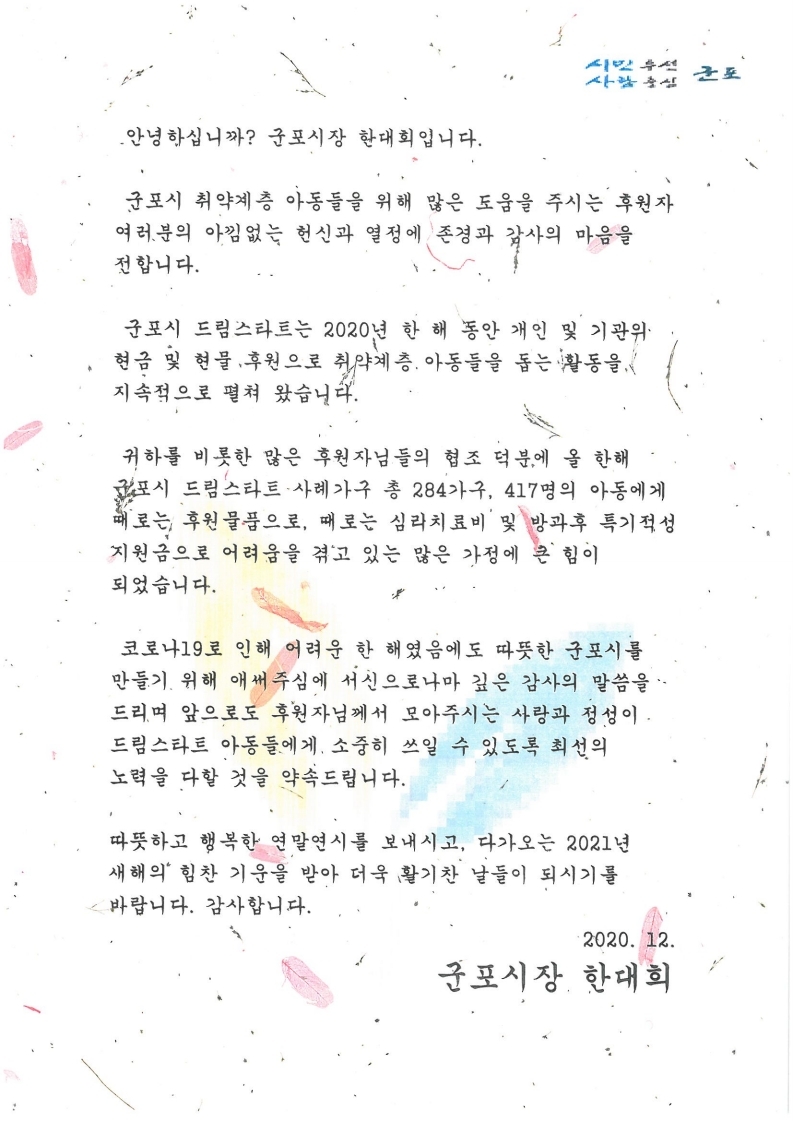 시민 우선
사람 중심 군포
안녕하십니까? 군포시장 한대희입니다.
군포시 취약계층 아동들을 위해 많은 도움을 주시는 후원자
여러분의 아낌없는 헌신과 열정에 존경과 감사의 마음을
전합니다.
군포시 드림스타트는 2020년 한 해 동안 개인 및 기관의
현금 및 현물 후원으로 취약계층 아동들을 돕는 활동을
지속적으로 펼쳐 왔습니다.
귀하를 비롯한 많은 후원자님들의 협조 덕분에 올 한해
군포시 드림스타트 사례가구 총 284가구, 417명의 아동에게
때로는 후원물품으로, 때로는 심리치료비 및 방과후 특기적성
지원금으로 어려움을 겪고 있는 많은 가정에 큰 힘이
되었습니다.
코로나19로 인해 어려운 한 해였음에도 따뜻한 군포시를
만들기 위해 애써주심에 서신으로나마 깊은 감사의 말씀을
드리며 앞으로도 후원자님께서 모아주시는 사랑과 정성이
드림스타트 아동들에게 소중히 쓰일 수 있도록 최선의
노력을 다할 것을 약속드립니다.
따뜻하고 행복한 연말연시를 보내시고, 다가오는 2021년
새해의 힘찬 기운을 받아 더욱 활기찬 날들이 되시기를
바랍니다. 감사합니다.
2020. 12.
군포시장 한대희